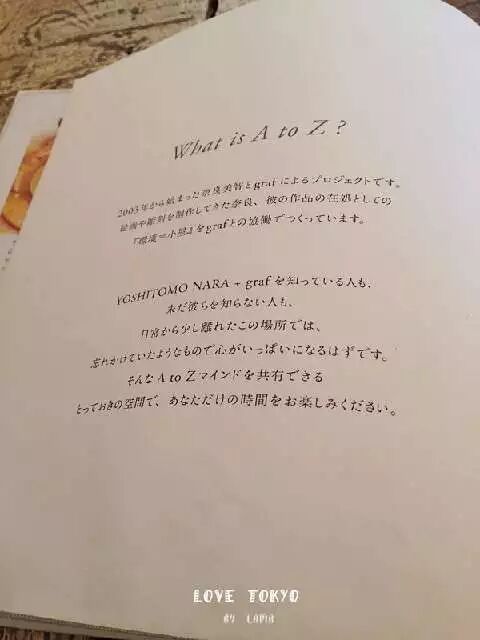 What is A to Z ?
2003年から始まった奈良美智とgrafによるプロジェクトです。
絵画や彫刻を制作してきた奈良、彼の作品の在処としての
『環境=小屋』をgrafとの協働でつくっています。
YOSHITOMO NARA + graf を知っている人も、
未だ彼らを知らない人も、
日常から少し離れたこの場所では、
忘れかけていたようなもので心がいっぱいになるはずです。
そんな A to Z マインドを共有できる
とっておきの空間で、あなただけの時間をお楽しみください。
LOVE TOKYO
BY LAMIA